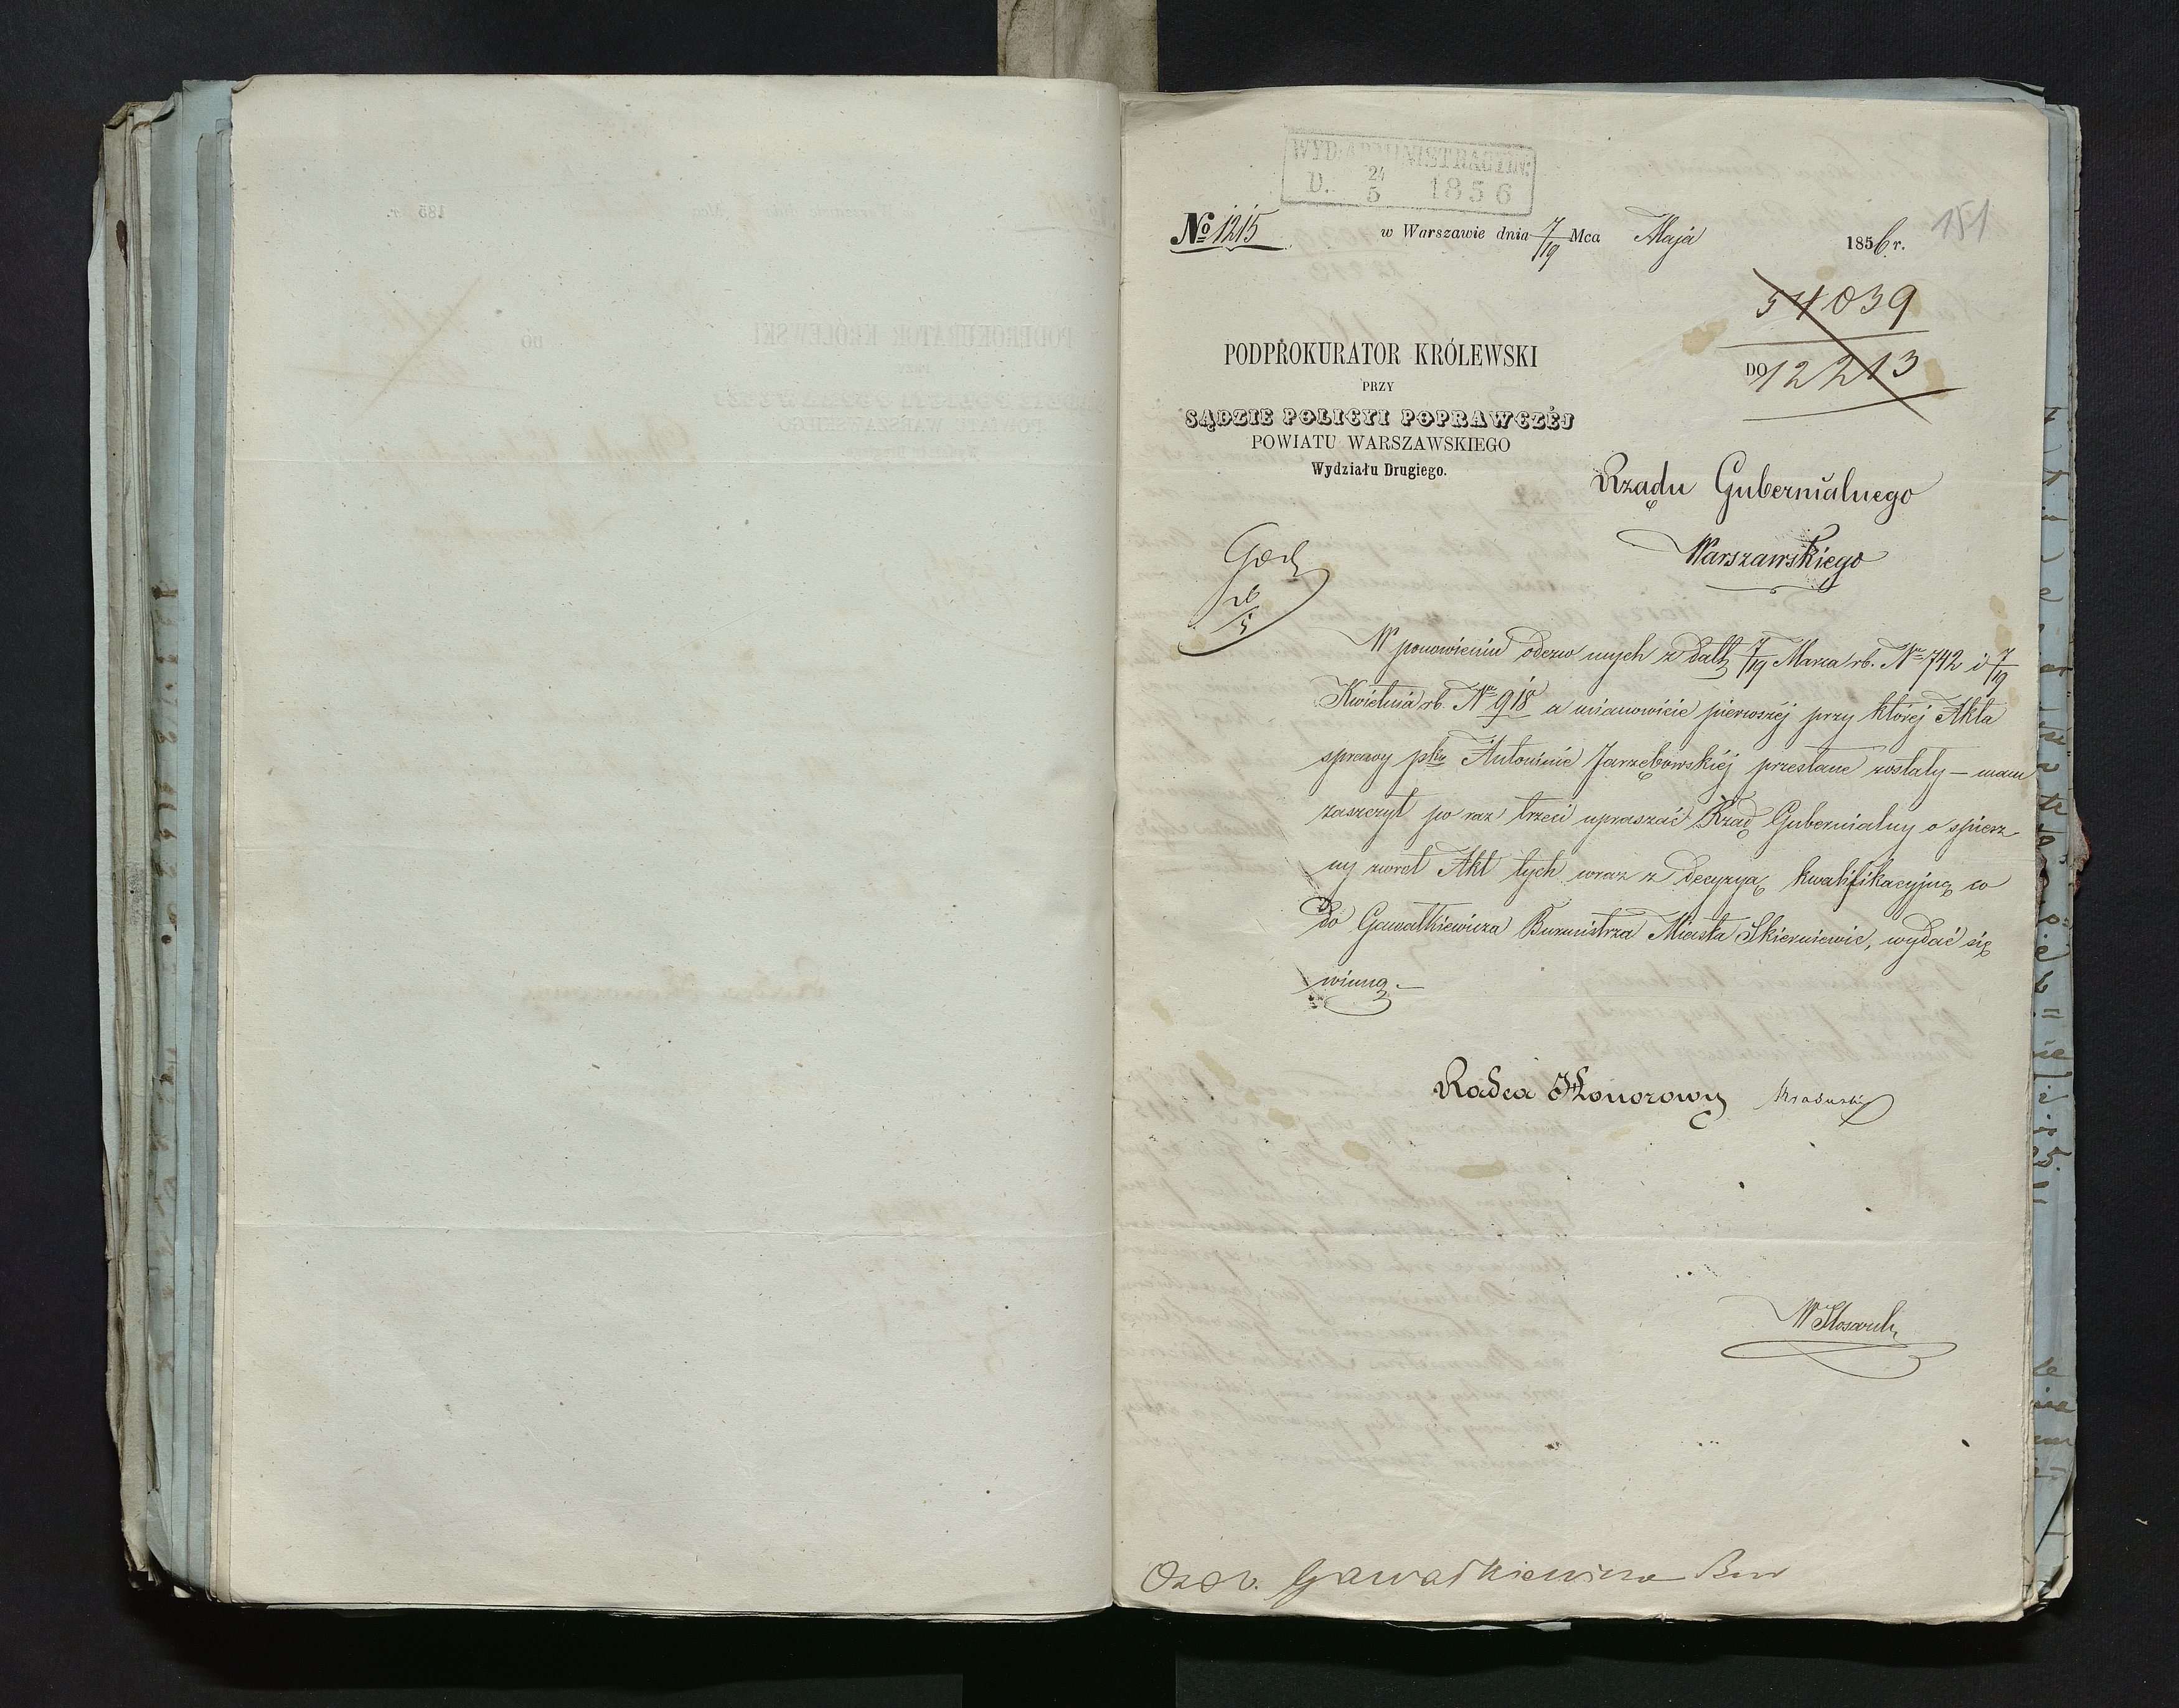 WYD. ADMINISTRACYJN.
D. 24/5 1856
№ 1215 w Warszawie dnia 7/19 Mca Maja 1856 r. 151
54039
DO 12213
PODPROKURATOR KRÓLEWSKI
PRZY
SĄDZIE POLICYI POPRAWCZÉJ
POWIATU WARSZAWSKIEGO
Wydziału Drugiego.
Rządu Gubernialnego
Warszawskiego
26/5
W ponowieniu odezw mych z daty 7/19 Marca rb. Nr 742 i 7/19
Kwietnia rb. Nr 918 a mianowicie pierwszéj przy któréj Akta
sprawy pko Antoninie Jarzębowskiéj przesłane zostały — mam
zaszczyt po raz trzeci upraszać Rząd Gubernialny o śpiesz-
ny zwrot Akt tych wraz z decyzyą kwalifikacyjną co
do Gawałkiewicza Burmistrza Miasta Skierniewic, wydać się
winną. —
Radca Honorowy
Gawałkiewicza Bur